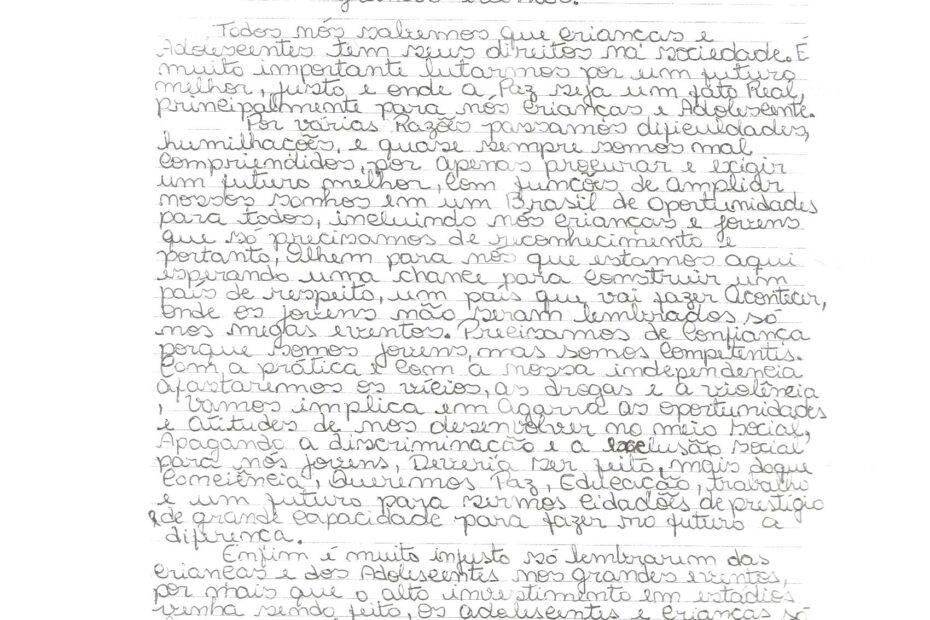 grandes eventos.
Todos nós sabemos que crianças e
Adolescentes tem seus direitos na sociedade. É
muito importante lutarmos por um futuro
melhor, justo e onde a Paz seja um fato Real,
principalmente para nós crianças e Adolescente.
Por várias Razões passamos dificuldades,
humilhações, e quase sempre somos mal
compriendidos, por apenas procurar e exigir
um futuro melhor, Com funções de ampliar
nossos sonhos em um Brasil de oportunidades
para todos, incluindo nós crianças e jovens
que só precisamos de reconhecimento e
portanto, Olhem para nós que estamos aqui
esperando uma chance para Construir um
país de respeito, um país que vai fazer Acontecer,
onde os jovens não seram lembrados só
nos megas eventos. Precisamos de Confiança
porque somos jovens, mas somos Competentes.
Com a prática e Com a nossa independencia
afastaremos os vícios, as drogas e a violência
, Vamos implica em Agarra as oportunidades
e Atitudes de nos desenvolver no meio social,
Apagando a discriminação e a exclusão social
para nós jovens, Deveria ser feito, mais doque
Conciência, Queremos Paz, Educação, trabalho
e um futuro para sermos Cidadões de prestígio
e de grande capacidade para fazer no futuro a
diferença.
Emfim é muito injusto só lembrarum das
crianças e dos Adolescentes nos grandes eventos,
por mais que o alto investimento em estádios
venha sendo feito, os adolescentes e crianças só